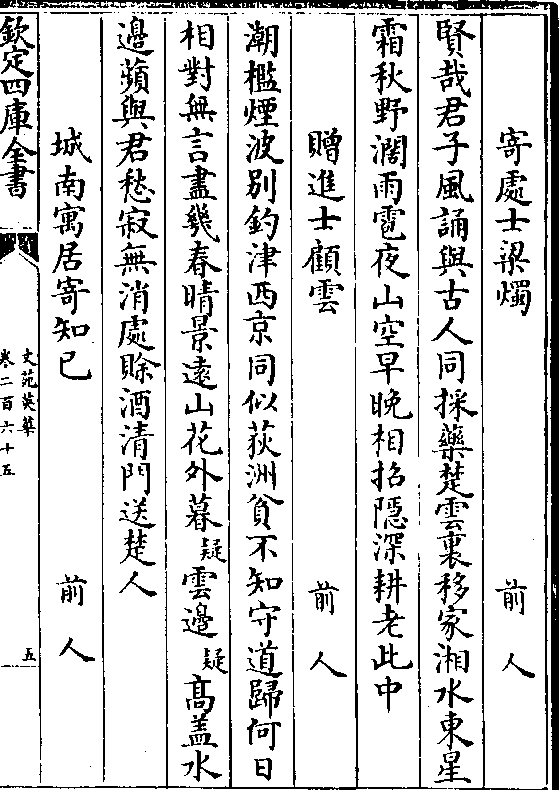 寄處士梁燭 前人
賢哉君子風誦與古人同採藥楚雲裏移家湘水東星
霜秋野濶雨雹夜山空早晚相招隱深耕老此中
贈進士顧雲 前人
潮檻煙波别釣津西京同似荻洲貧不知守道歸何日
相對無言盡幾春晴景逺山花外暮疑雲邊疑髙盖水
邊蘋與君愁寂無消處賒酒清門送楚人
城南寓居寄知已 前人
欽定四庫全書
文苑英華
卷二百六十五
五